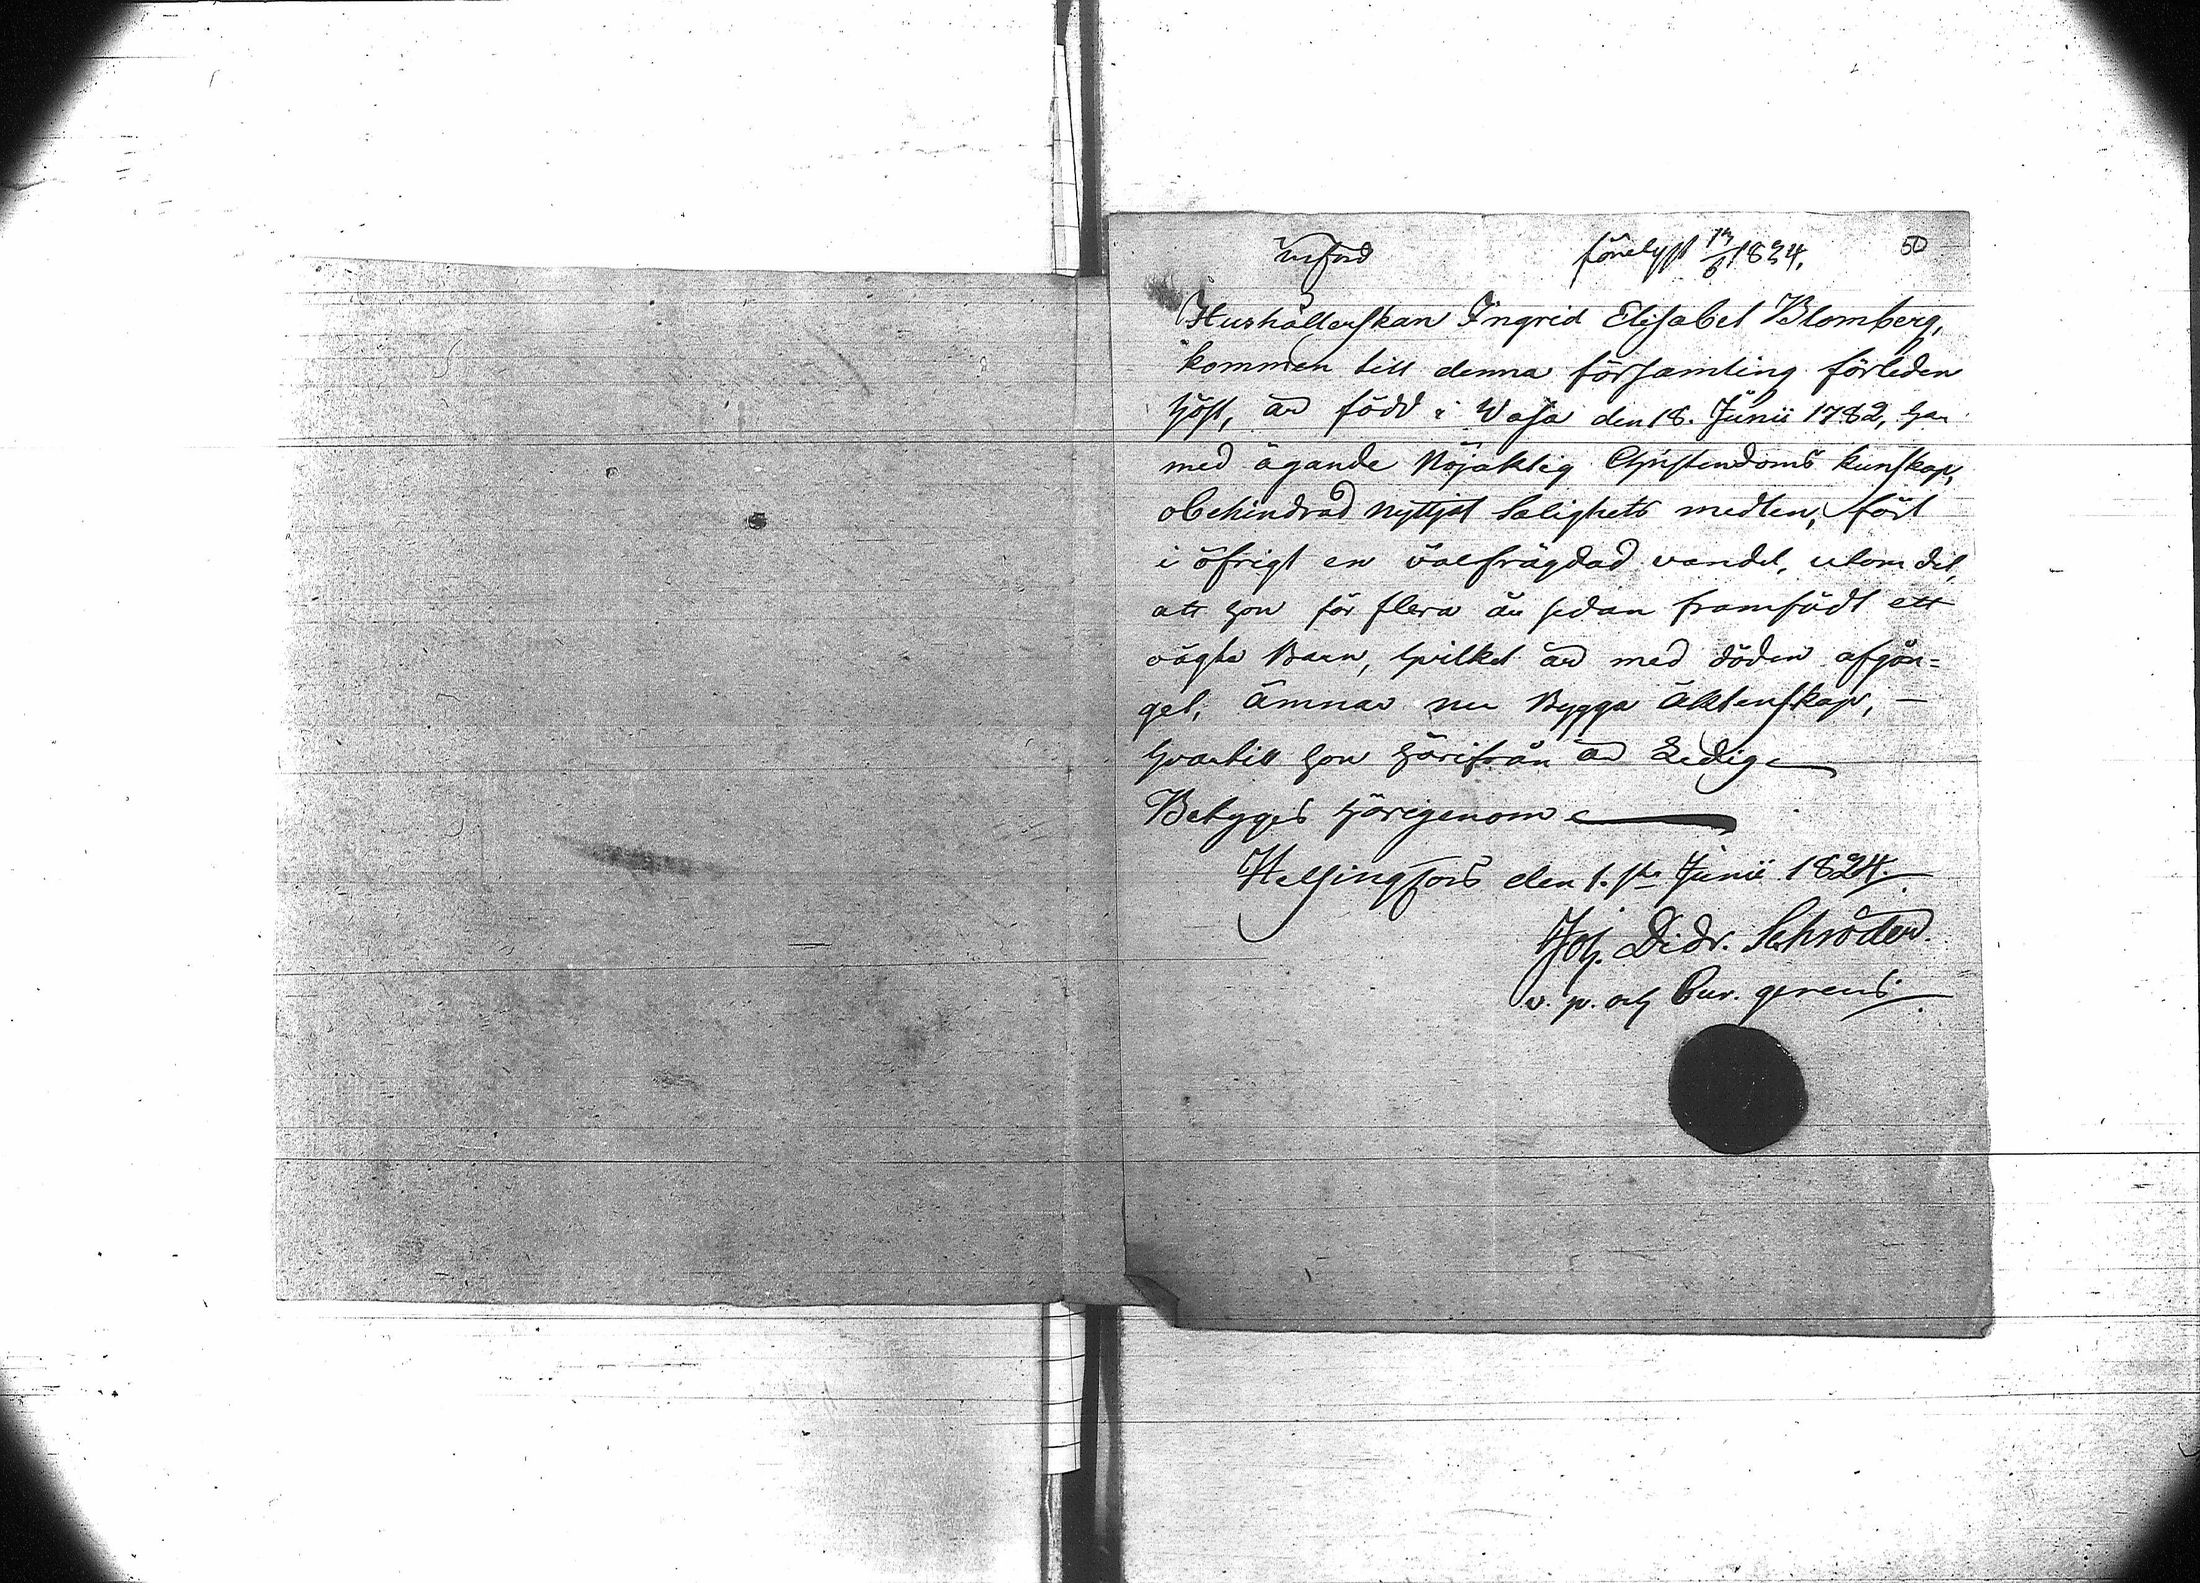 införd förelyst 13/6 1824. 50
Hushållerskan Ingrid Elisabet Blomberg,
kommen till denna församling förleden
höst, är född i Wasa den 18. Junii 1782, har
med ägande nöjaktig Christendoms kunskap,
obehindrad nyttjat Salighets medlen, fört
i öfrigt en välfrägdad vandel, utom det,
att hon för flera år sedan framfödt ett
oägta Barn, hvilket är med döden afgån=
get, ämnar nu Bygga äktenskap, —
hvartill hon härifrån är Ledig
Betygas härigenom
Helsingfors den 1.sta Junii 1824.
Joh. Didr. Schröder.
v. p. och Cur. gerens.